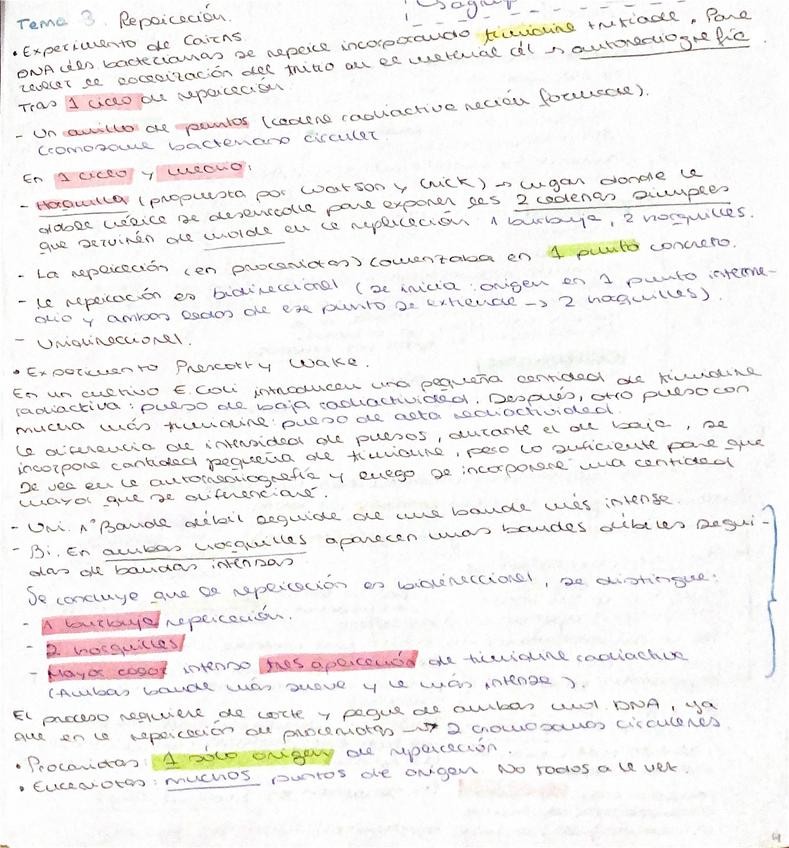 Tema 3. Replicación.
• Experimento de Cairns
DNA céls bacterianas se replica incorporando timidina tritiada. Para
revelar la localización del tritio en el material cél → autoradiografía
Tras 1 ciclo de replicación:
- Un anillo de puntos (cadena radiactiva recién formada).
Cromosoma bacteriano circular.
En 1 ciclo y medio:
- Horquilla (propuesta por Watson y Crick) → lugar donde la
doble hélice se desenrolla para exponer las 2 cadenas simples
que servirán de molde en la replicación 1 burbuja, 2 horquillas.
- La replicación (en procariotas) comenzaba en 1 punto concreto.
- La replicación es bidireccional (se inicia: origen en 1 punto interme-
dio y ambos lados de ese punto se extiende → 2 horquillas).
- Unidireccional.
• Experimento Prescott y Wake.
En un cultivo E. Coli introducen una pequeña cantidad de timidina
radiactiva: pulso de baja radiactividad. Después, otro pulso con
mucha más timidina: pulso de alta radiactividad.
La diferencia de intensidad de pulsos, durante el de baja, se
incorpora cantidad pequeña de timidina, pero lo suficiente para que
se vea en la autorradiografía y luego se incorporará una cantidad
mayor que se diferenciará.
- Uni. 1ª Banda débil seguida de una banda más intensa.
- Bi. En ambas horquillas aparecen unas bandas débiles segui-
das de bandas intensas
Se concluye que la replicación es bidireccional, se distingue:
- 1 burbuja replicación.
- 2 horquillas
- Mayor color intenso tras aplicación de timidina radiactiva
(Ambas banda más suave y la más intensa).
El proceso requiere de corte y pegue de ambas mol. DNA, ya
que en la replicación de procariotas → 2 cromosomas circulares.
• Procariotas: 1 sólo origen de replicación.
• Eucariotas: muchos puntos de origen. No todos a la vez.
4